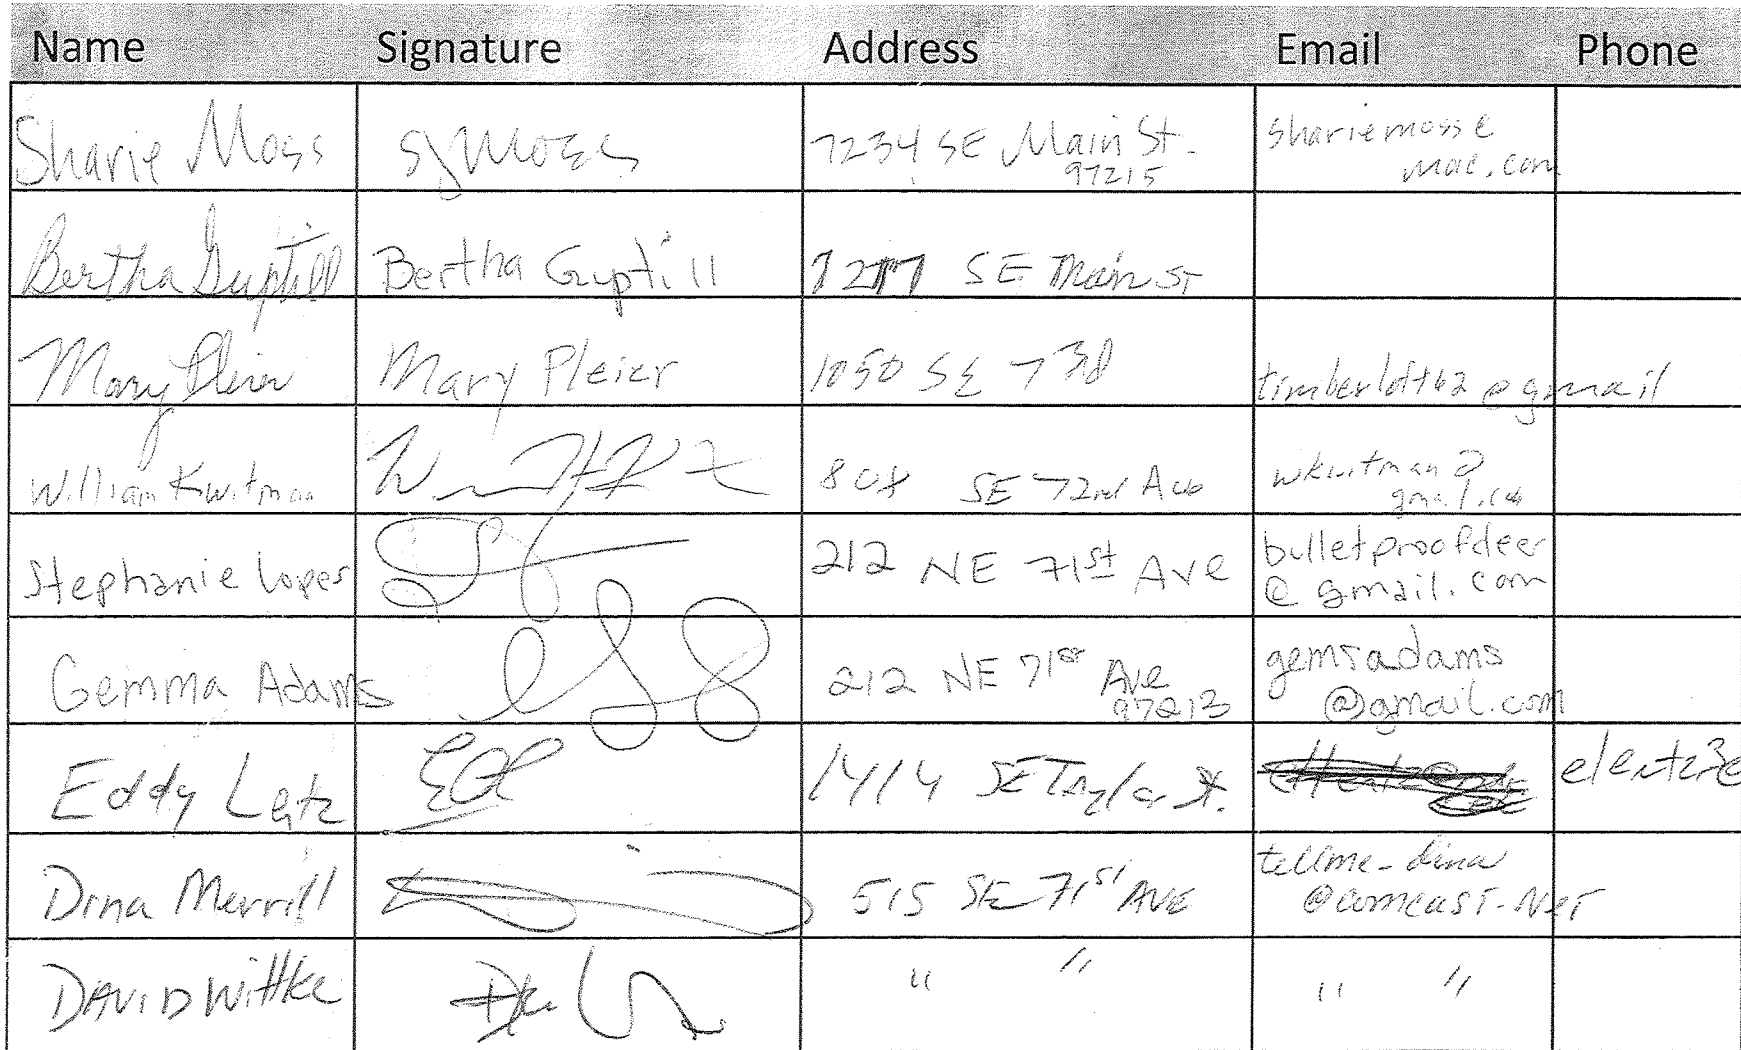 Name Signature Address Email Phone
Sharie Moss SJ Moss 7234 SE Main St. shariemoss@
97215 mac.com
Bertha Guptill Bertha Guptill SE Main St
Mary Pleier Mary Pleier 1050 SE 73d timberloft62@gmail
William Kwitman 808 SE 72nd Ave wkwitman@
gmail.com
Stephanie Lopes 212 NE 71st Ave bulletproofdeer
@gmail.com
Gemma Adams 212 NE 71st Ave gemsadams
97213 @gmail.com
Eddy 1414 SE Taylor St.
Dina Merrill 515 SE 71st AVE tellme-dina
@comcast.Net
DAVID Wittke " " " "